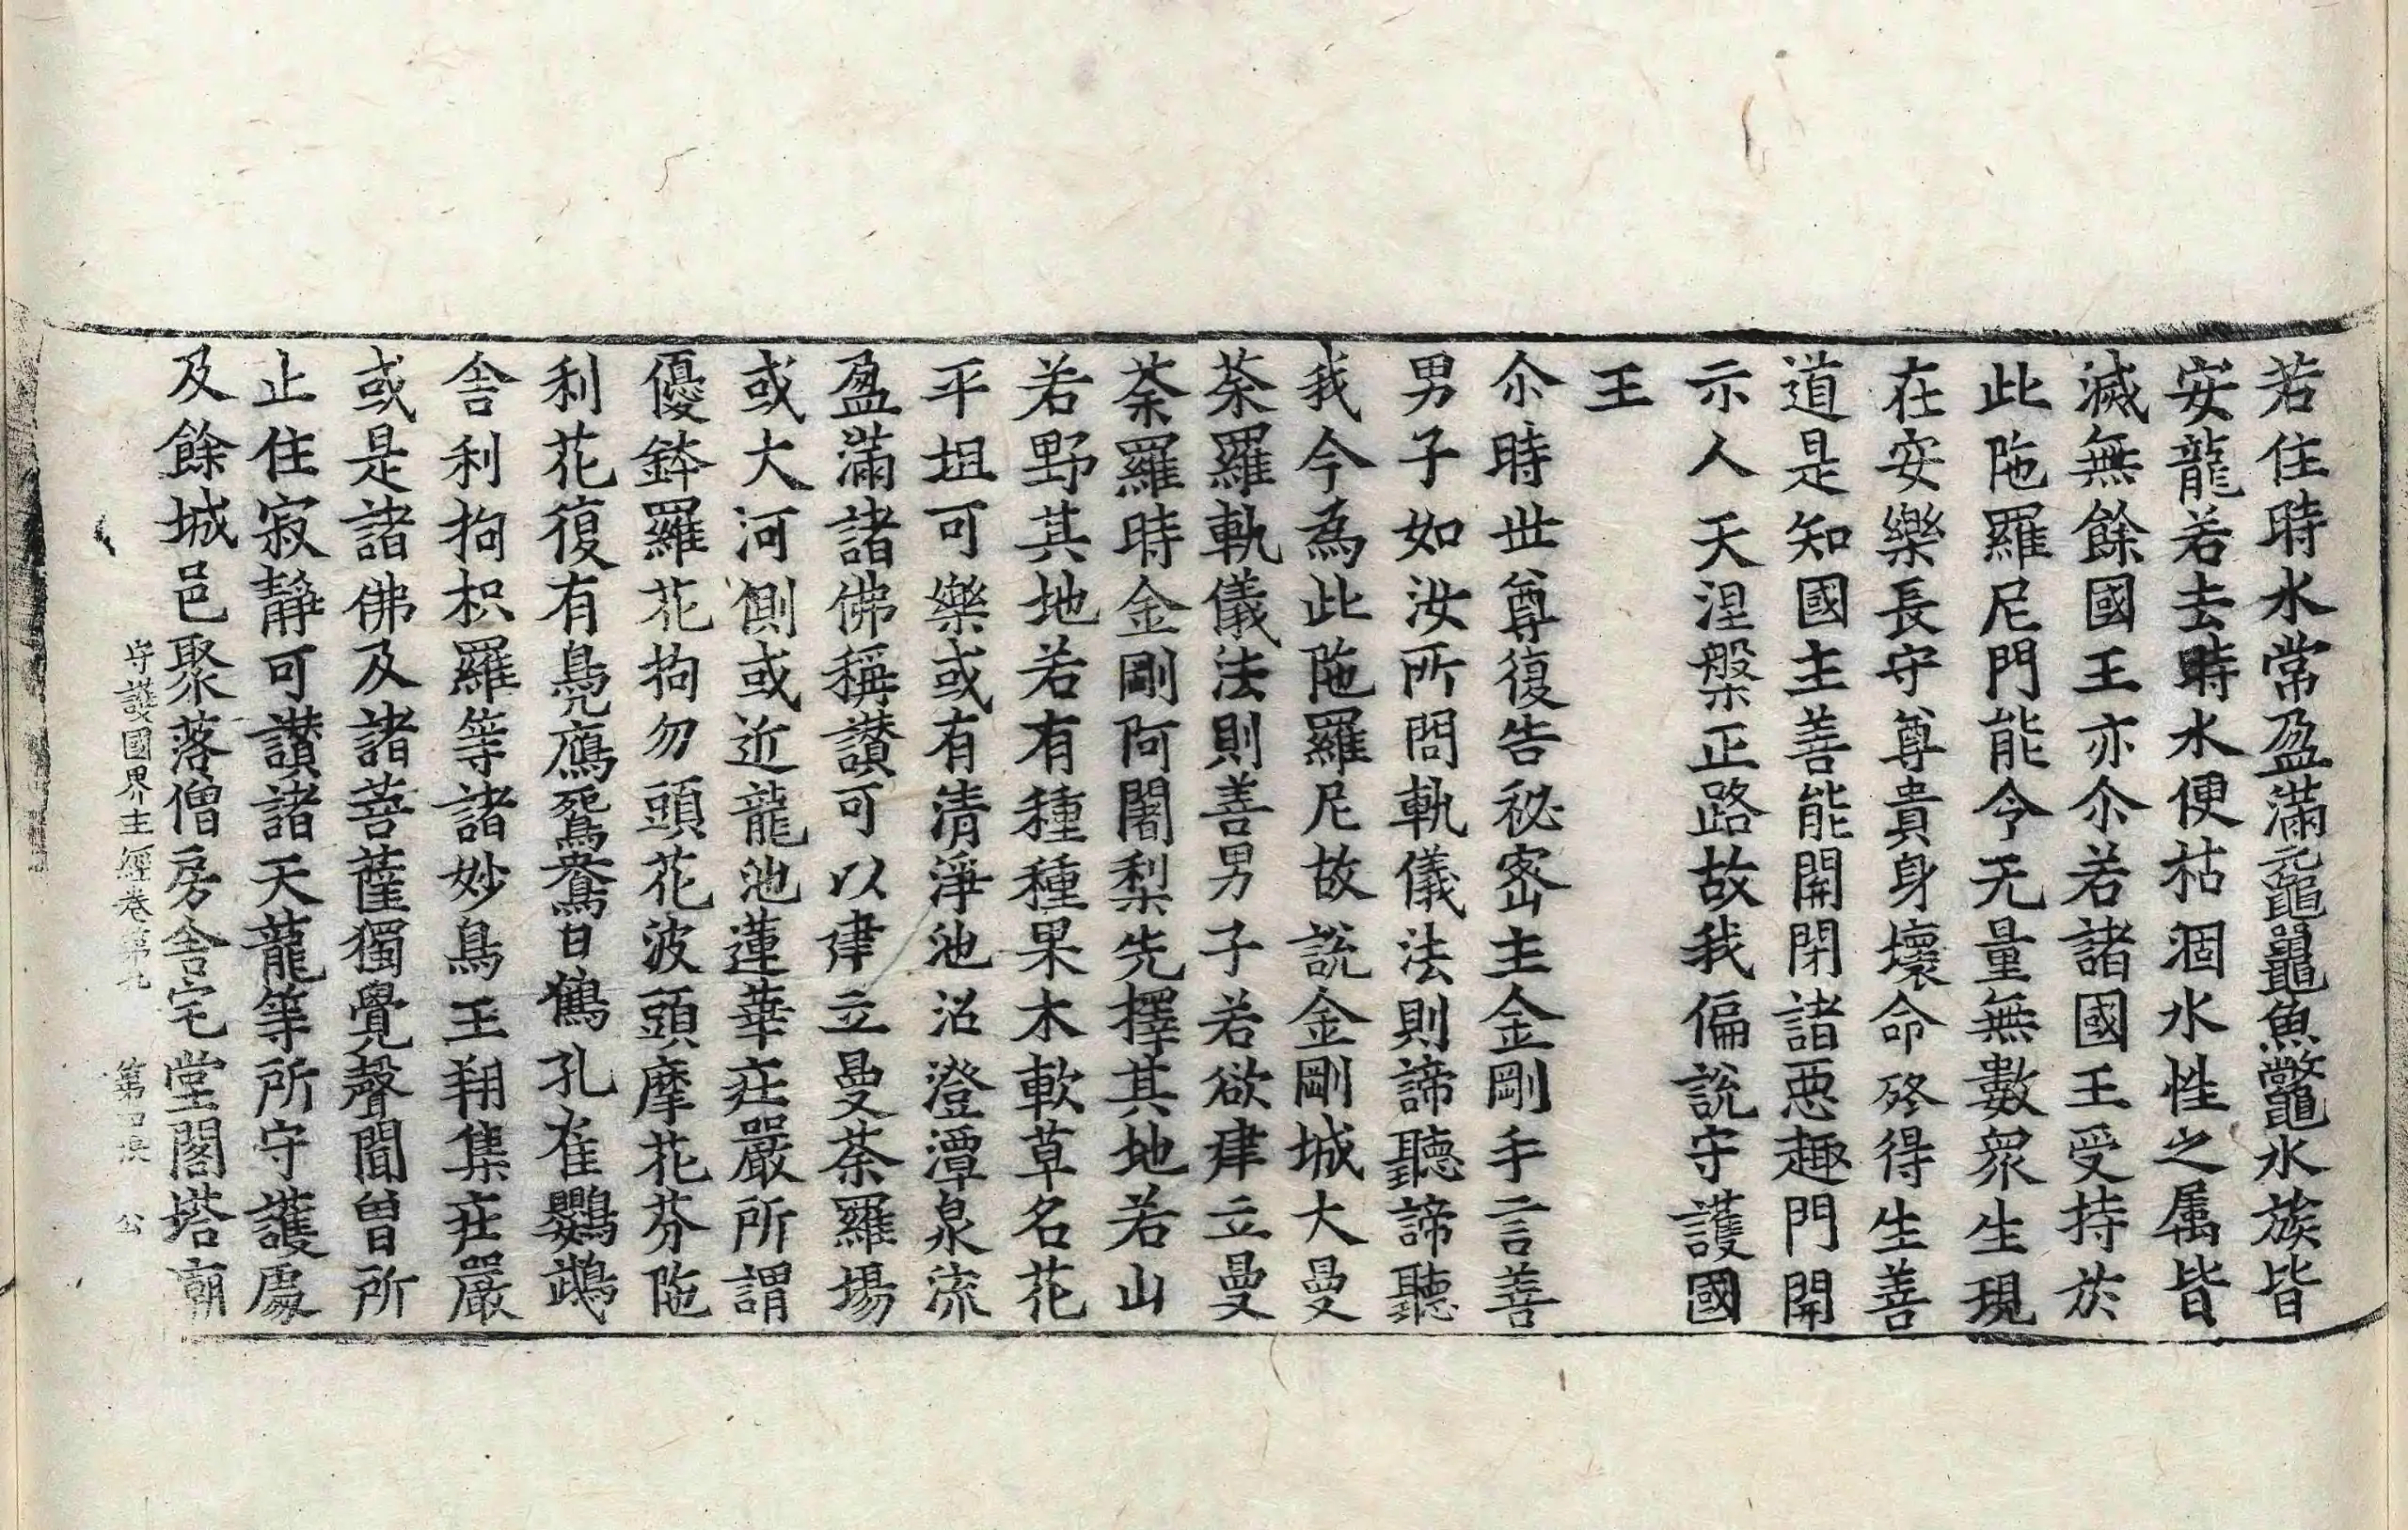 若住時水常盈滿黿鼉魚鼈水族皆
安龍若去時水便枯涸水性之属皆
滅無餘國王亦尒若諸國王受持於
此陁羅尼門能令无量無數衆生現
在安樂長守尊貴身壞命終得生善
道是知國主善能開閉諸惡趣門開
示人天涅槃正路故我偏說守護國
王
尒時世尊復告秘密主金剛手言善
男子如汝所問軌儀法則諦聽諦聽
我今為此陁羅尼故說金剛城大曼
荼羅軌儀法則善男子若欲建立曼
荼羅時金剛阿闍梨先擇其地若山
若野其地若有種種果木軟草名花
平坦可樂或有清淨池沼澄潭泉流
盈滿諸佛稱讃可以建立曼荼羅場
或大河側或近龍池蓮華莊嚴所謂
優鉢羅花拘勿頭花波頭摩花芬陁
利花復有鳧鴈鴛鴦白鶴孔雀鸚鵡
舎利拘枳羅等諸妙鳥王翔集莊嚴
或是諸佛及諸菩薩獨覺聲聞曽所
止住寂靜可讃諸天龍等所守護處
及餘城邑聚落僧房舎宅堂閣塔廟
守護國界主經卷第九　第四張　公